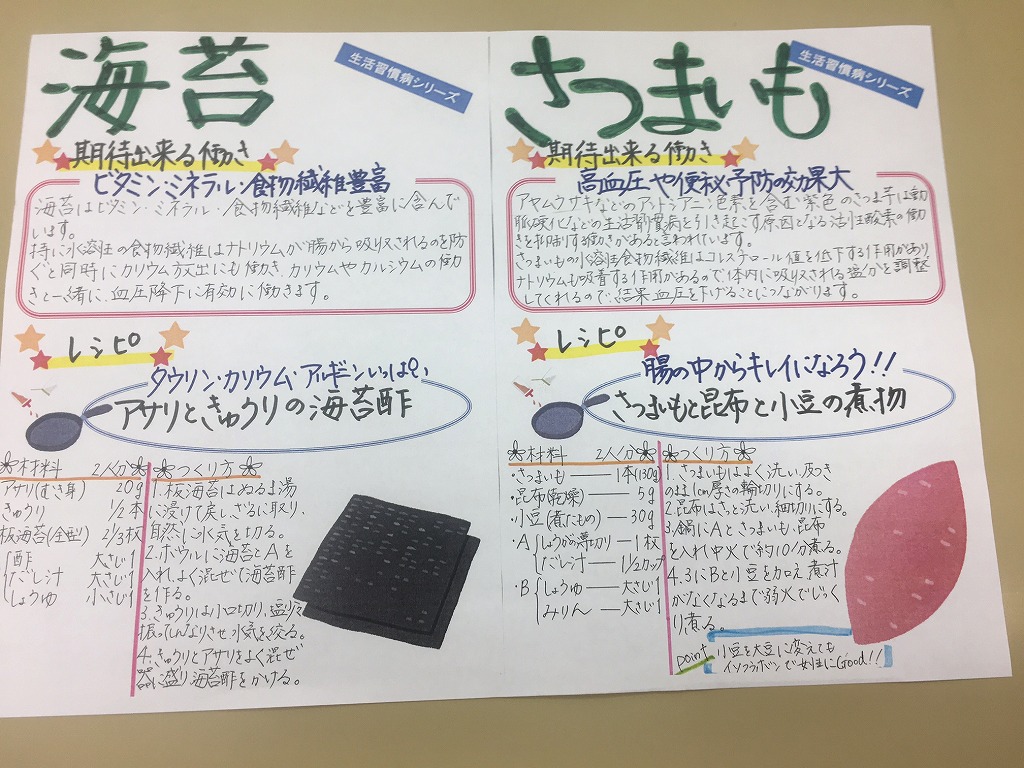 海苔
生活習慣病シリーズ
期待出来る働き
ビタミン・ミネラル・食物繊維豊富
海苔はビタミン・ミネラル・食物繊維などを豊富に含んで
います。
特に水溶性の食物繊維はナトリウムが腸から吸収されるのを防
ぐと同時にカリウム放出にも働き、カリウムやカルシウムの働
きと一緒に、血圧降下に有効に働きます。
レシピ
タウリン・カリウム・アルギンいっぱい
アサリときゅうりの海苔酢
材料 2人分
アサリ(むき身) 20g
きゅうり 1/2本
板海苔(全型) 2/3枚
A
酢 大さじ1
だし汁 大さじ1
しょうゆ 小さじ1
つくり方
1.板海苔はぬるま湯
に浸けて戻し、ざるに取り、
自然に水気を切る。
2.ボウルに海苔とAを
入れ、よく混ぜて海苔酢
を作る。
3.きゅうりは小口切り、塩少々
振ってしんなりさせ水気を絞る。
4.きゅうりとアサリをよく混ぜ
器に盛り海苔酢をかける。
さつまいも
生活習慣病シリーズ
期待出来る働き
高血圧や便秘予防の効果大
アヤムラサキなどのアントシアニン色素を含む紫色のさつま芋は動
脈硬化などの生活習慣病を引き起こす原因となる活性酸素の働
きを抑制する働きがあると言われています。
さつまいもの水溶性食物繊維はコレステロール値を低下する作用があり
ナトリウムも吸着する作用があるので、体内に吸収される塩分を調整
してくれるので、結果血圧を下げることにつながります。
レシピ
腸の中からキレイになろう!!
さつまいもと昆布と小豆の煮物
材料 2人分
・さつまいも ― 1本(130g)
・昆布(乾燥) ― 5g
・小豆(煮たもの) ― 30g
・A しょうが薄切り ― 1枚
だし汁 ― 1/2カップ
・B しょうゆ ― 大さじ1
みりん ― 大さじ1
つくり方
1.さつまいもはよく洗い、皮つき
のまま1cm厚さの輪切りにする。
2.昆布はさっと洗い、細切りにする。
3.鍋にAとさつまいも、昆布
を入れ中火で約10分煮る。
4.3にBと小豆を加え、煮汁
がなくなるまで弱火でじっく
り煮る。
point 小豆を大豆に変えても
イソフラボンで女性にGood!!